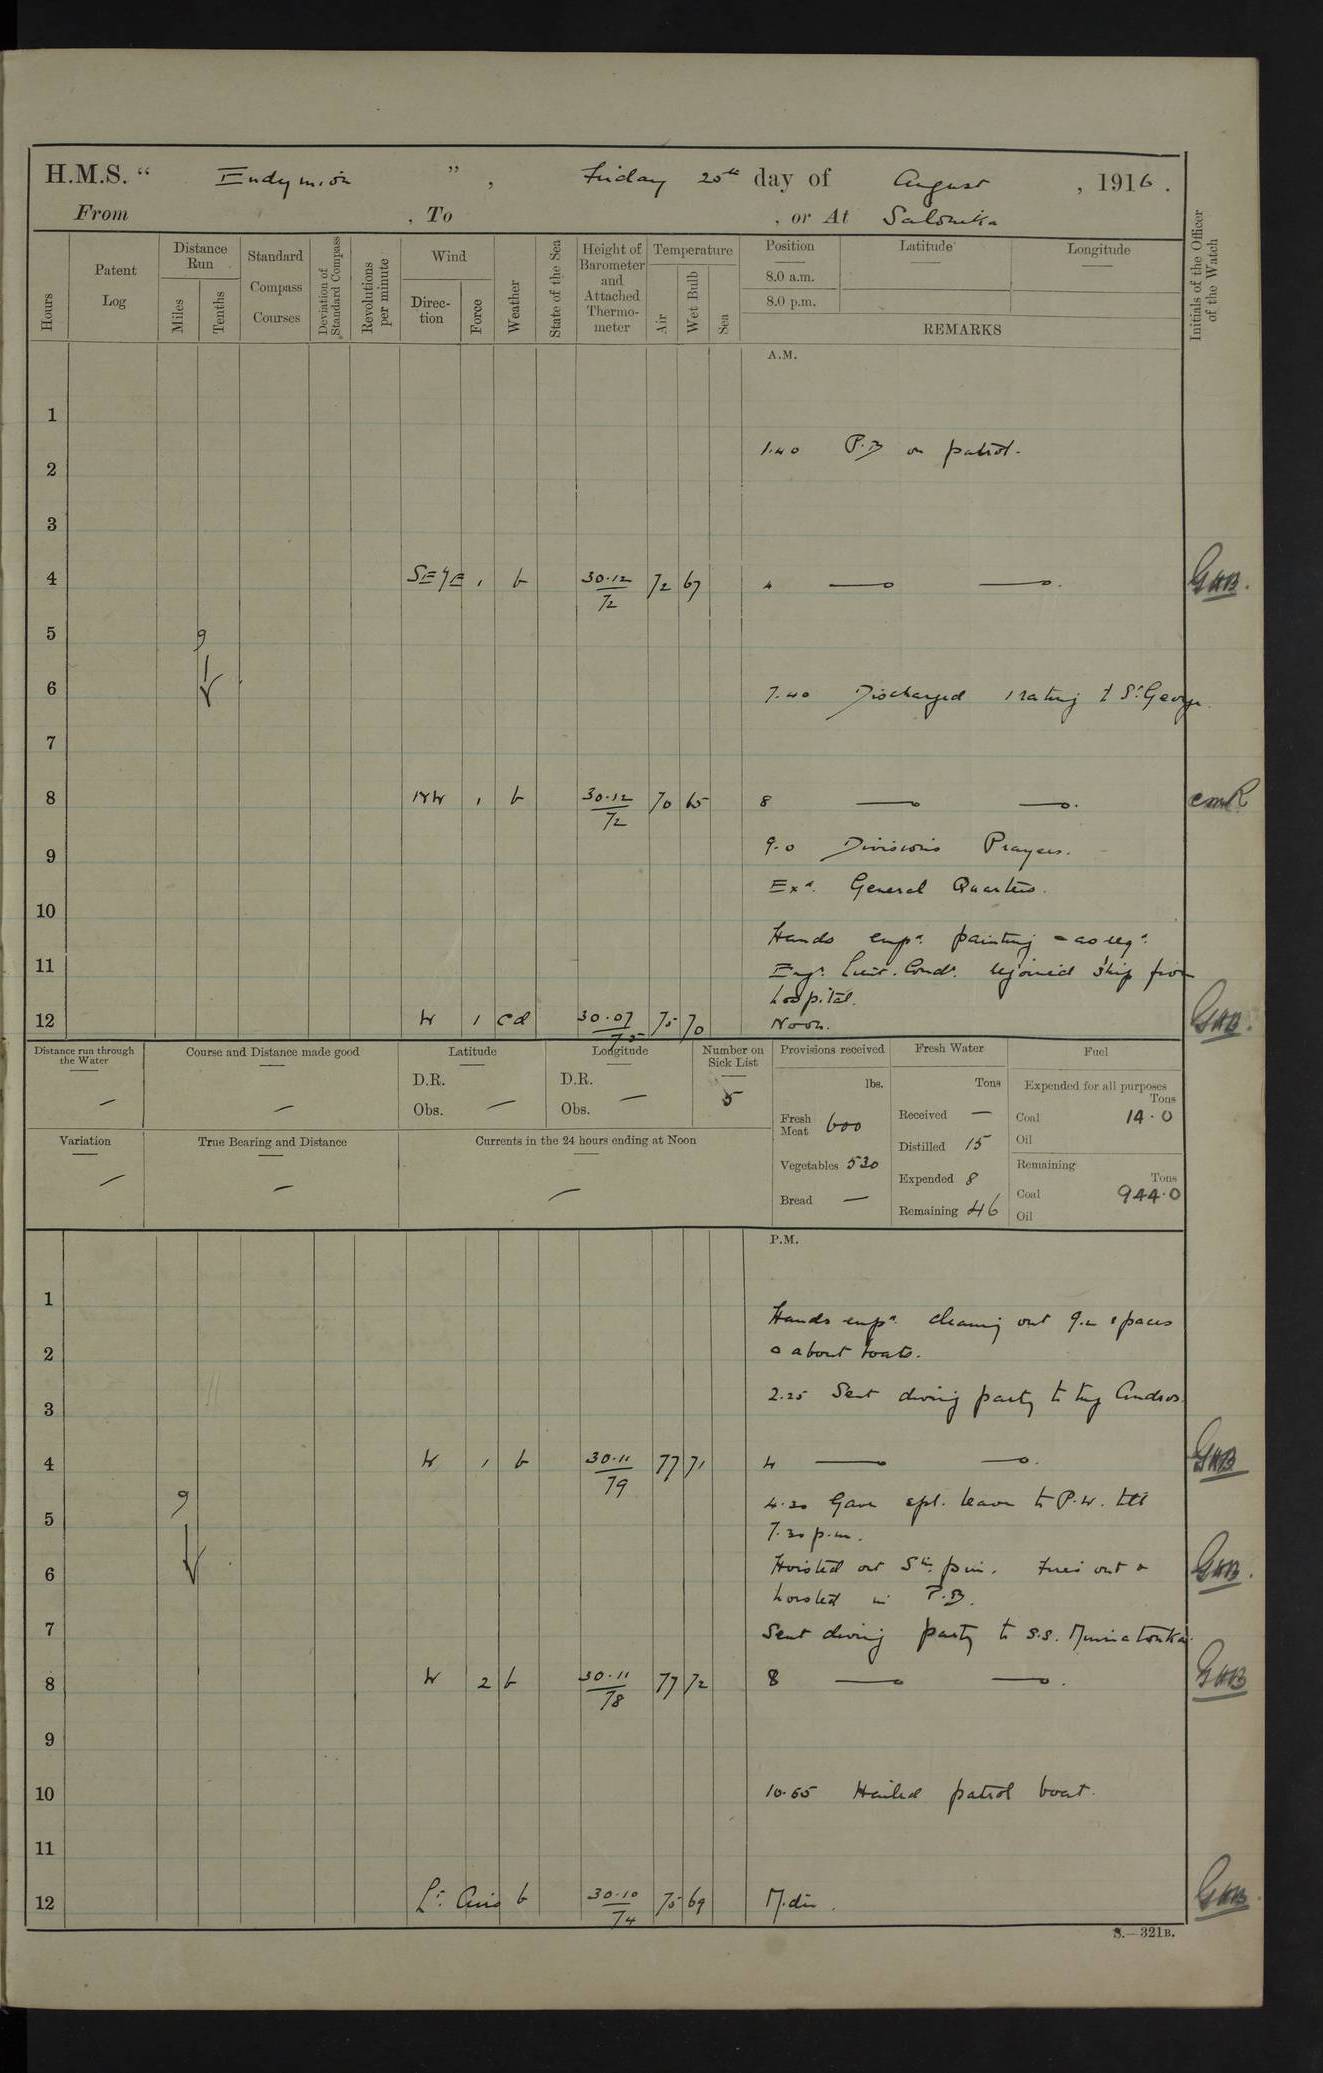 H.M.S. " Endymion ", Friday 25th day of August, 1916.
From , To , or At Salonika
Hours
Patent Log
Distance Run
Miles
Tenths
Standard Compass Courses
Deviation of Standard Compass
Revolutions per minute
Wind
Direction
Force
Weather
State of the Sea
Height of Barometer and Attached Thermometer
Temperature
Air
Wet Bulb
Sea
Position
8.0 a.m.
8.0 p.m.
Latitude
Longitude
REMARKS
Initials of the Officer of the Watch
A.M.
1
1.40 P.B on patrol.
2
3
4 SE by E 1 b 30.12/72 72 67 4 —o —o. GHB.
5 9
6
7.40 Discharged 1 rating to St George.
7
8 NW 1 b 30.12/72 70 65 8 —o —o.
9
9.0 Divisions Prayers.
Exd. General Quarters.
10
Hands empd. painting & as reqd.
11
Engr. Lieut. Comdr. rejoined ship from
hospital.
12 W 1 cd 30.07/75 75 70 Noon. GHB.
Distance run through the Water —
Course and Distance made good —
Latitude
D.R.
Obs. —
Longitude
D.R.
Obs. —
Number on Sick List
5
Provisions received
lbs.
Fresh Meat 600
Vegetables 530
Bread —
Fresh Water
Tons
Received —
Distilled 15
Expended 8
Remaining 46
Fuel
Expended for all purposes
Tons
Coal 14.0
Oil
Remaining
Tons
Coal 944.0
Oil
Variation —
True Bearing and Distance —
Currents in the 24 hours ending at Noon —
P.M.
1
Hands empd. cleaning out spaces
2
& about boats.
2.25 Sent diving party to tug Andros.
3
4 W 1 b 30.11/79 77 71 4 —o —o. GHB
9
4.30 Gave spl. leave to P.W. till
5
7.30 p.m.
6 Hoisted out pin. out & GHB.
hoisted in P.B.
7 Sent diving party to S.S. Minnetonka.
8 W 2 b 30.11/78 77 72 8 —o —o. GHB
9
10 10.55 Hailed patrol boat.
11
12 Lt. Airs b 30.10/74 75 69 Mdt. GHB.
S.—321B.